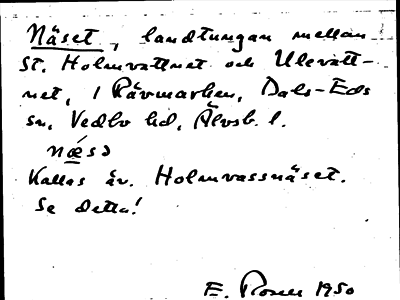 Näset, landtungan mellan
St. Holmvattnet och Ulevatt-
net, i Rävmarken, Dals-Eds
sn, Vedbo hd, Älvsb. l.
nǽsə
Kallas äv. Holmvassnäset.
Se detta!
E. Rosell 1950